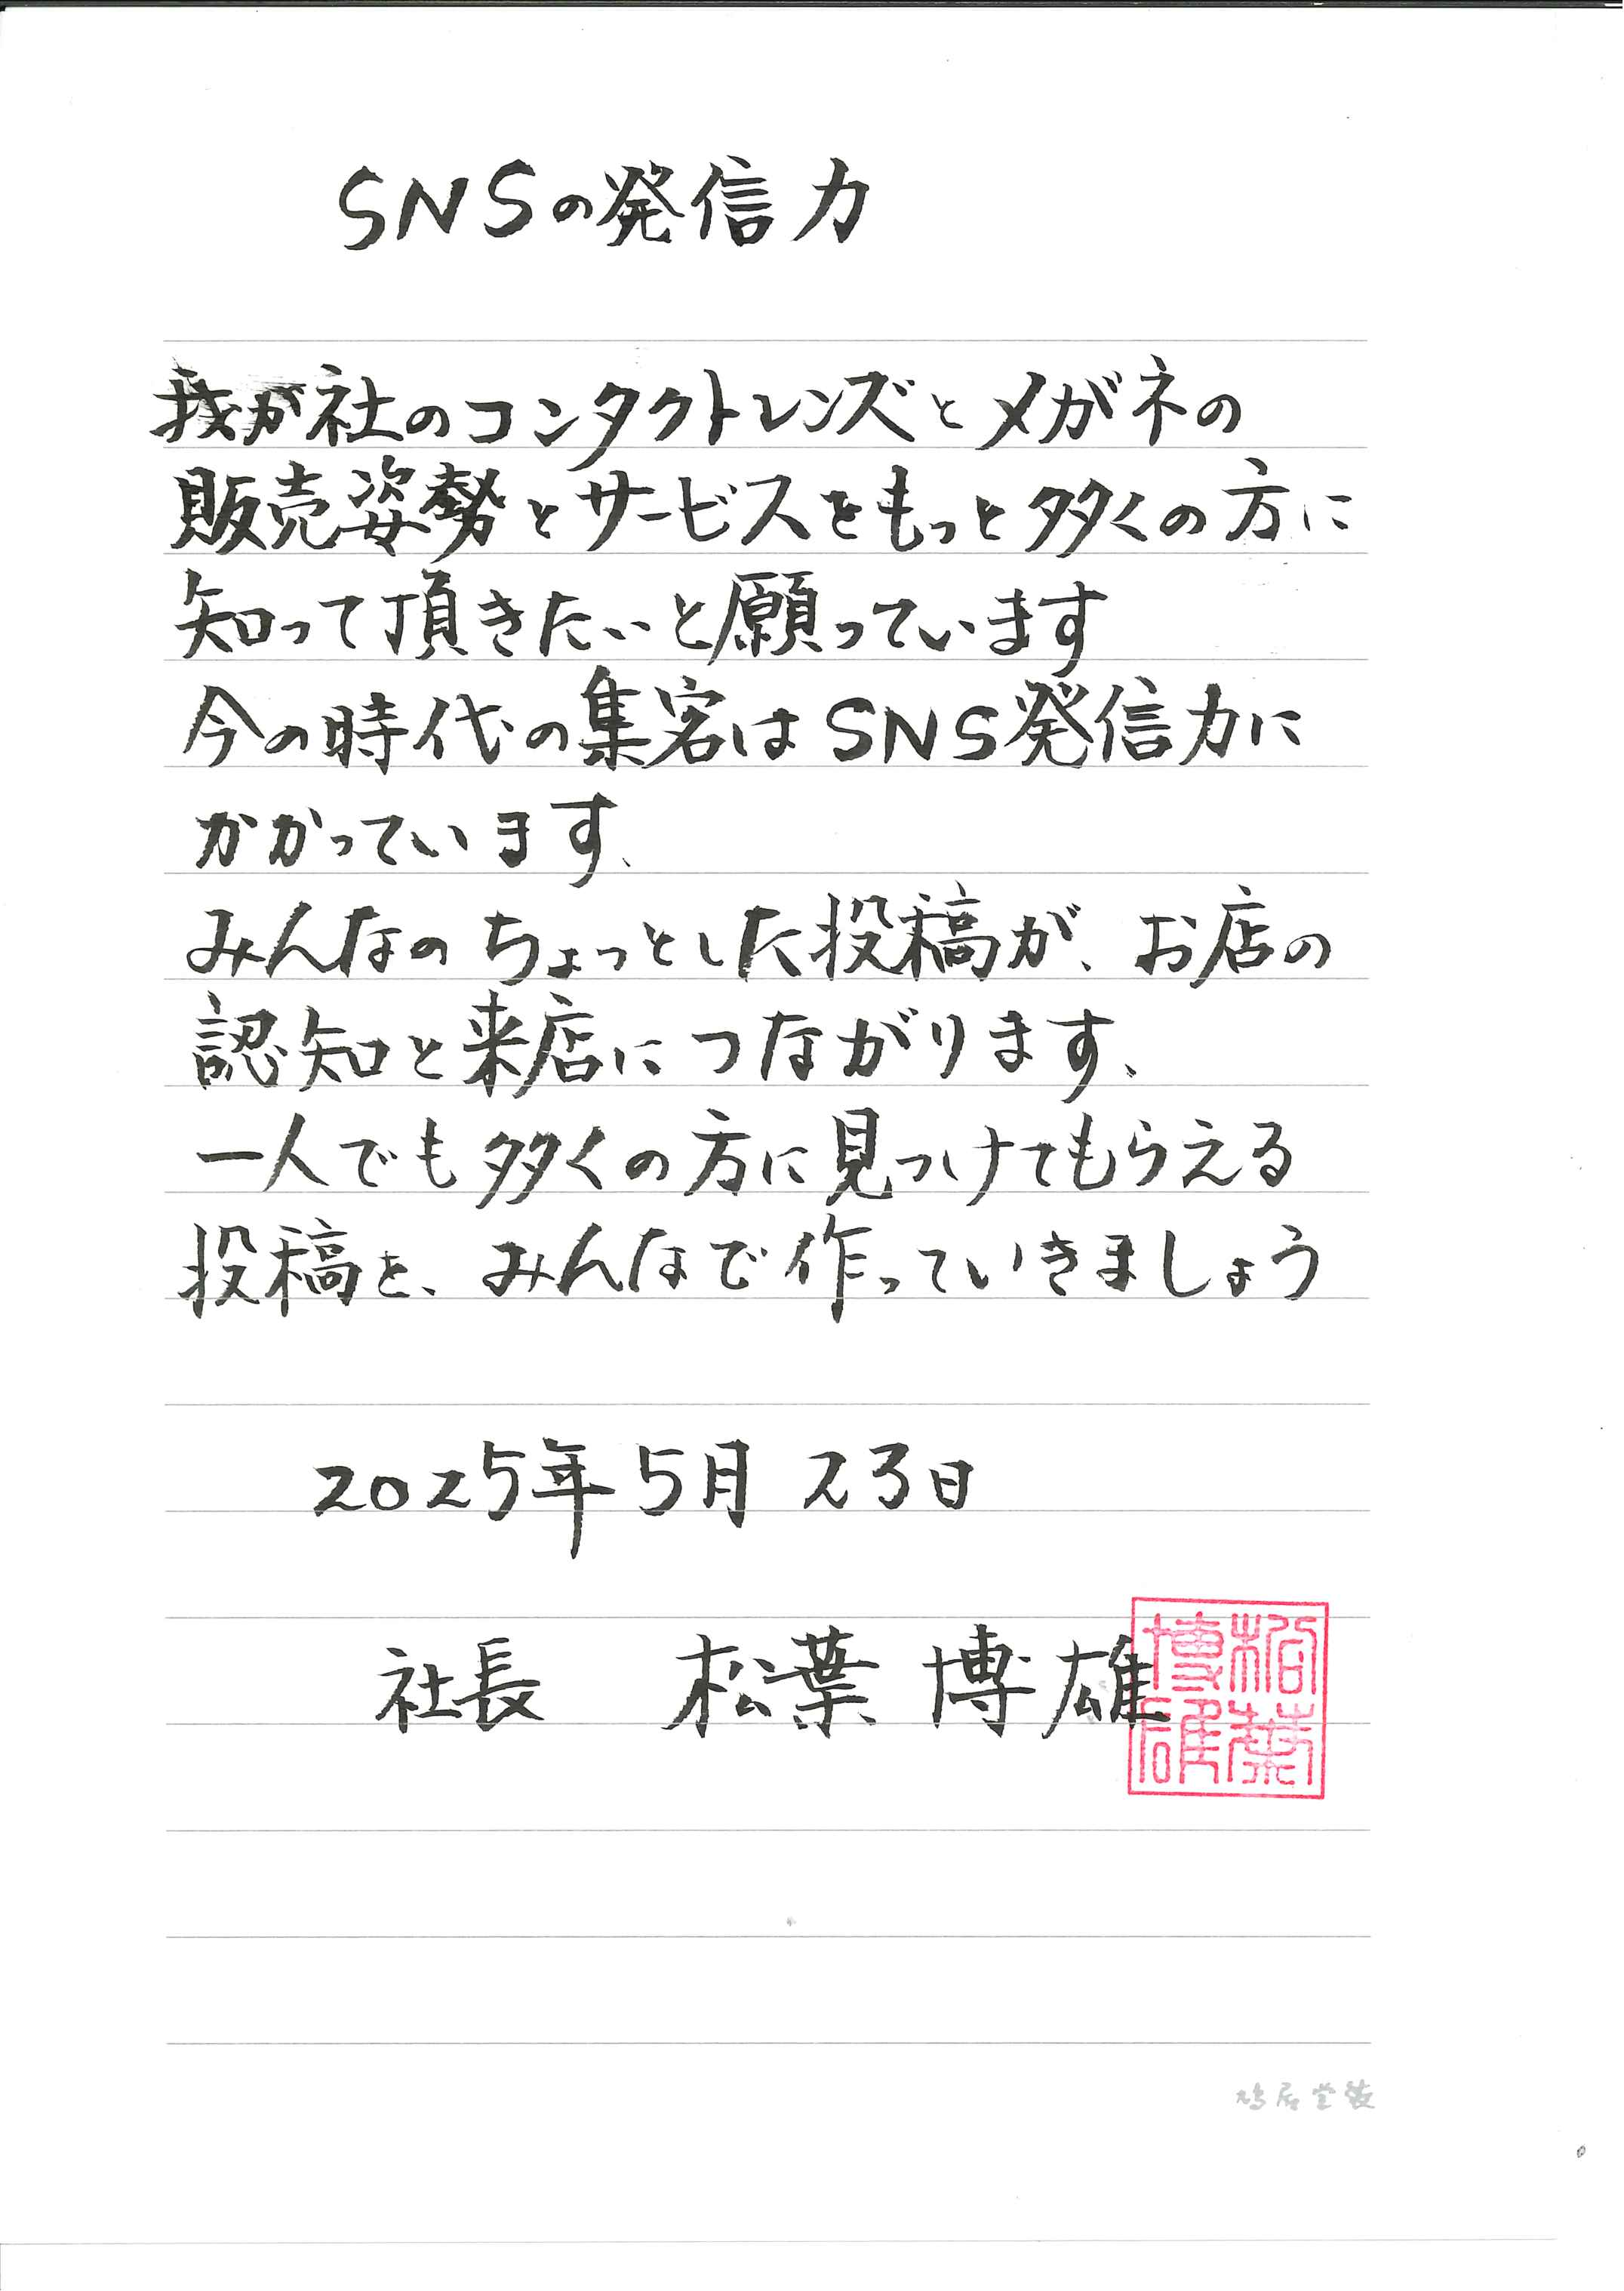 SNSの発信力
我が社のコンタクトレンズとメガネの
販売姿勢とサービスをもっと多くの方に
知って頂きたいと願っています
今の時代の集客はSNS発信力に
かかっています、
みんなのちょっとした投稿が、お店の
認知と来店につながります、
一人でも多くの方に見つけてもらえる
投稿を、みんなで作っていきましょう
2025年5月23日
社長 松葉 博雄
松葉
博雄
鳩居堂製